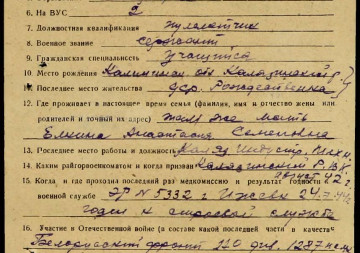 6. На ВУС 2
7. Должностная квалификация пулеметчик
8. Военное звание сержант
9. Гражданская специальность учащийся
10. Место рождения Калининская обл Калязинский р
11. Последнее место жительства дер. Рождественка
12. Где проживает в настоящее время семья (фамилия, имя и отчество жены или
родителей и точный их адрес) там же мать
Елкина Анастасия Семеновна
13. Последнее место работы и должность
14. Каким райгорвоенкоматом и когда призван Калязинский РВК
август 42 г
15. Когда, и где проходил последний раз медкомиссию и результат годности к
военной службе ЭГ № 5332 г Ижевск 24.7.44
годен к строевой службе
16. Участие в Отечественной войне (в составе какой последней части в качестве
Белорусский фронт 110 див. 1287